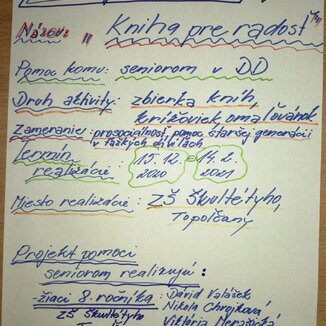 Názov: "Kniha pre radosť"
Pomoc komu: seniorom v DD
Druh aktivity: zbierka kníh,
krížoviek, omaľovánok
Zameranie: prosociálnosť, pomoc staršej generácii
v ťažkých chvíľách
Termín
realizácie: 15.12. - 14.2.
2020 2021
Miesto realizácie: ZŠ Škultétyho,
Topoľčany
Projekt pomoci
seniorom realizujú:
- žiaci 8. ročníka: Dávid Valášek
ZŠ Škultétyho Nikola Chrojková
Viktória